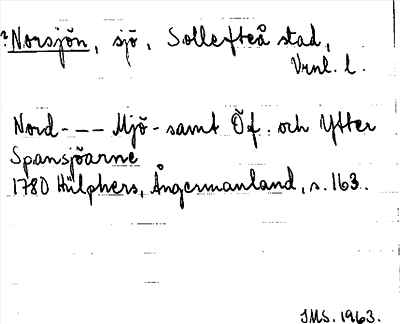 ? Norsjön, sjö, Sollefteå stad,
Vrnl. l.
Nord- -- Mjö- samt Öf. och Ytter
Spansjöarne
1780 Hülphers, Ångermanland, s. 163.
JMS. 1963.